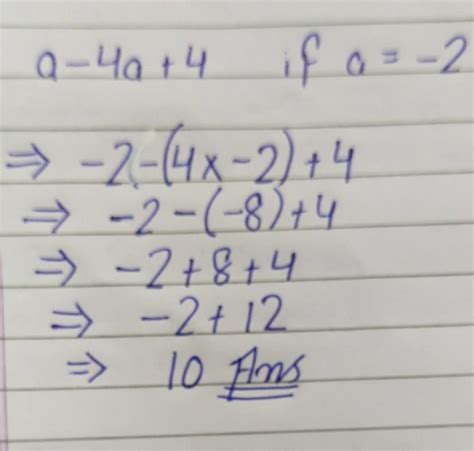 a-4a+4 if a = -2
⇒ -2-(4x-2)+4
⇒ -2-(-8)+4
⇒ -2+8+4
⇒ -2+12
⇒ 10 Ans